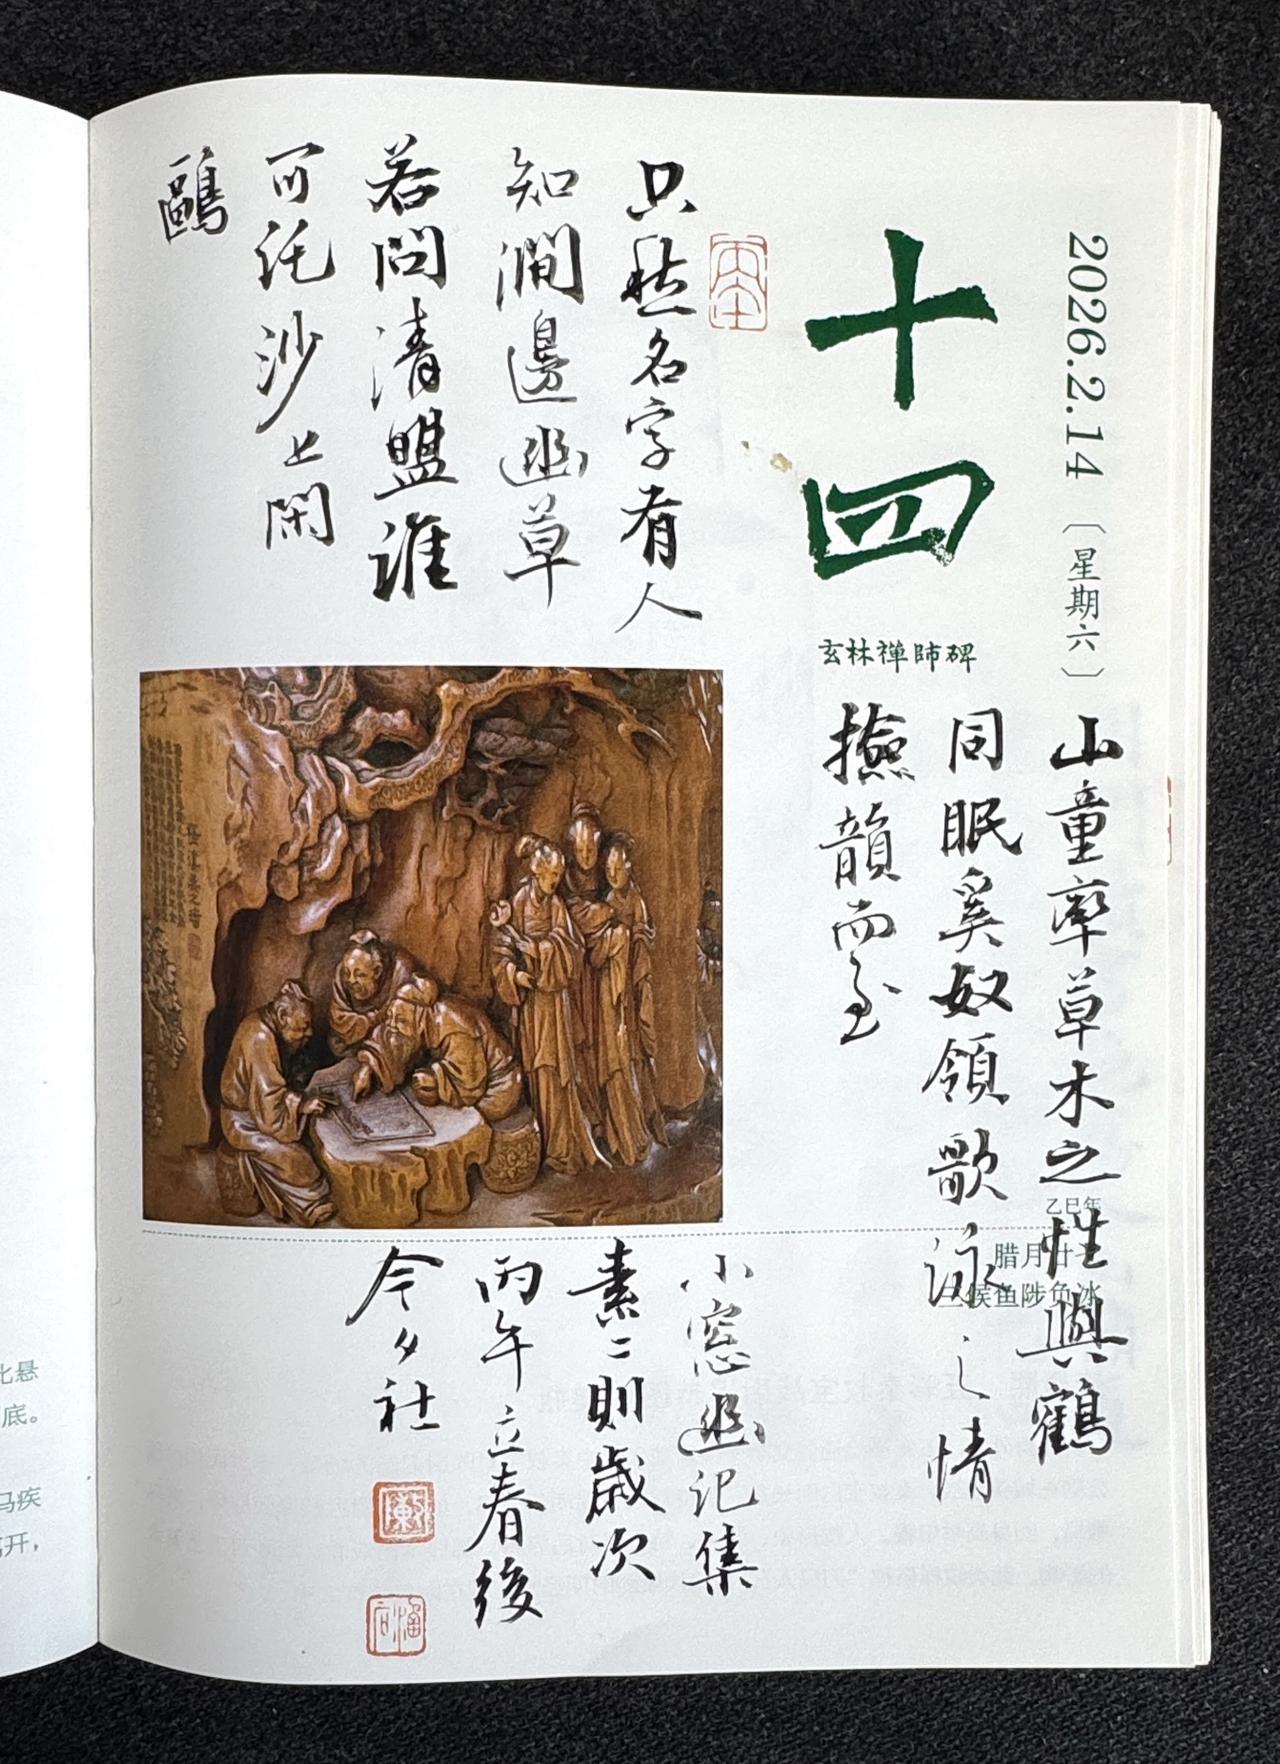 2026.2.14〔星期六〕
十四
玄林禅師碑
乙巳年
腊月廿七
三候鱼陟负冰
只愁名字有人
知澗邊幽草
若問清盟誰
可託沙上閑
鷗
山童率草木之性與鶴
同眠奚奴領歌詠之情
撿韻而至
小窓幽记集
素二則歲次
丙午立春後
今夕社
比悬
底。
马疾
离开，